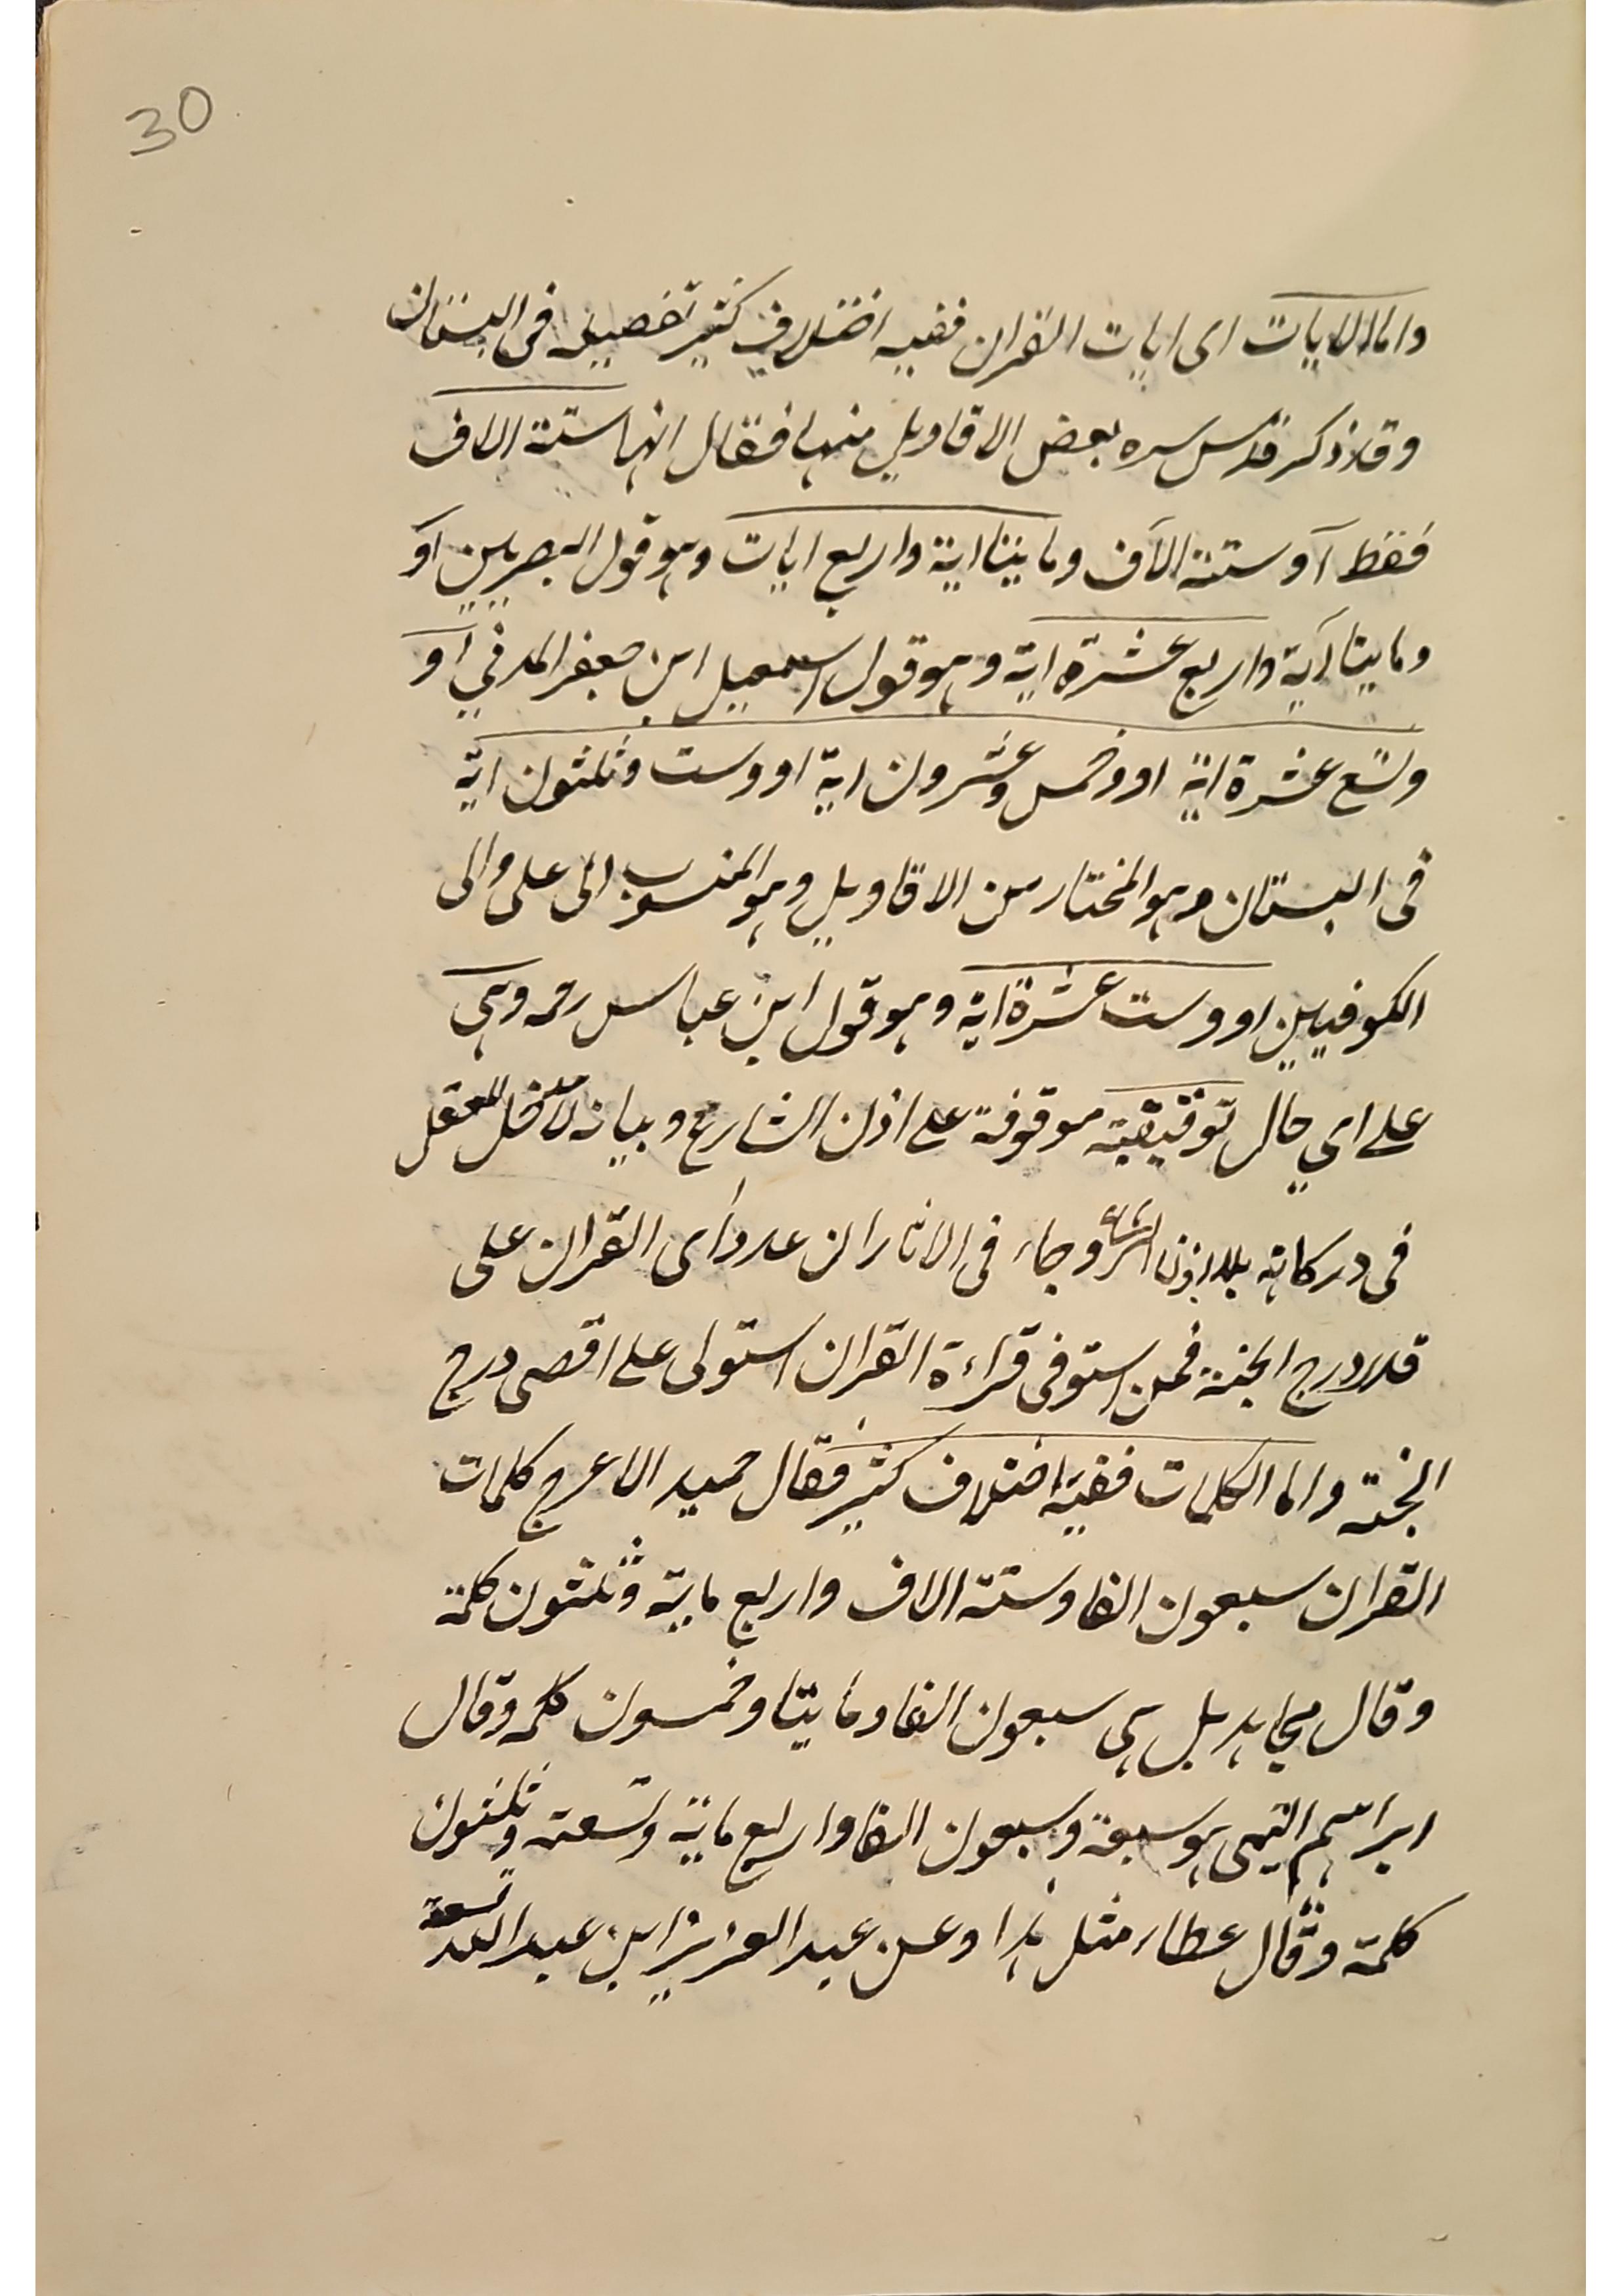 30
واما الايات اى ايات القران ففيه اختلاف كثير تفصيله فى البستان
وقد ذكر قدس سره بعض الاقاويل منها فقال انها ستة الاف
فقط آو ستة الآف ومايتا اية واربع ايات وهو قول البصريين اوَ
ومايتا آية واربع عشرة اية وهو قول اسمعيل ابن جعفر المدني اوَ
وتسع عشرة اية او وخمس وعشرون اية او وست وثلثون اية
فى البستان وهو المختار من الاقاويل وهو المنسوب الى على والى
الكوفيين او وست عشرة اية وهو قول ابن عباس رحمه وهى
على اي حال توقيفية موقوفة على اذن الشارع وبيانه لا دخل للعقل
فى دركاته بلا اذن الشرع وجاء فى الاثار ان عدد اى القران على
قدر درج الجنة فمن استوفى قراءة القران استولى على اقصى درج
الجنة واما الكلمات ففيه اختلاف كثير فقال حميد الاعرج كلمات
القران سبعون الفا وستة الاف واربع ماية وثلثون كلمة
وقال مجاهد بل هى سبعون الفا ومايتا وخمسون كلمه وقال
ابراهيم التيمى هو سبعة وسبعون الفا واربع ماية وتسعة وثلثون
كلمة وقال عطاء مثل هذا وعن عبد العزيز ابن عبد الله تسعة